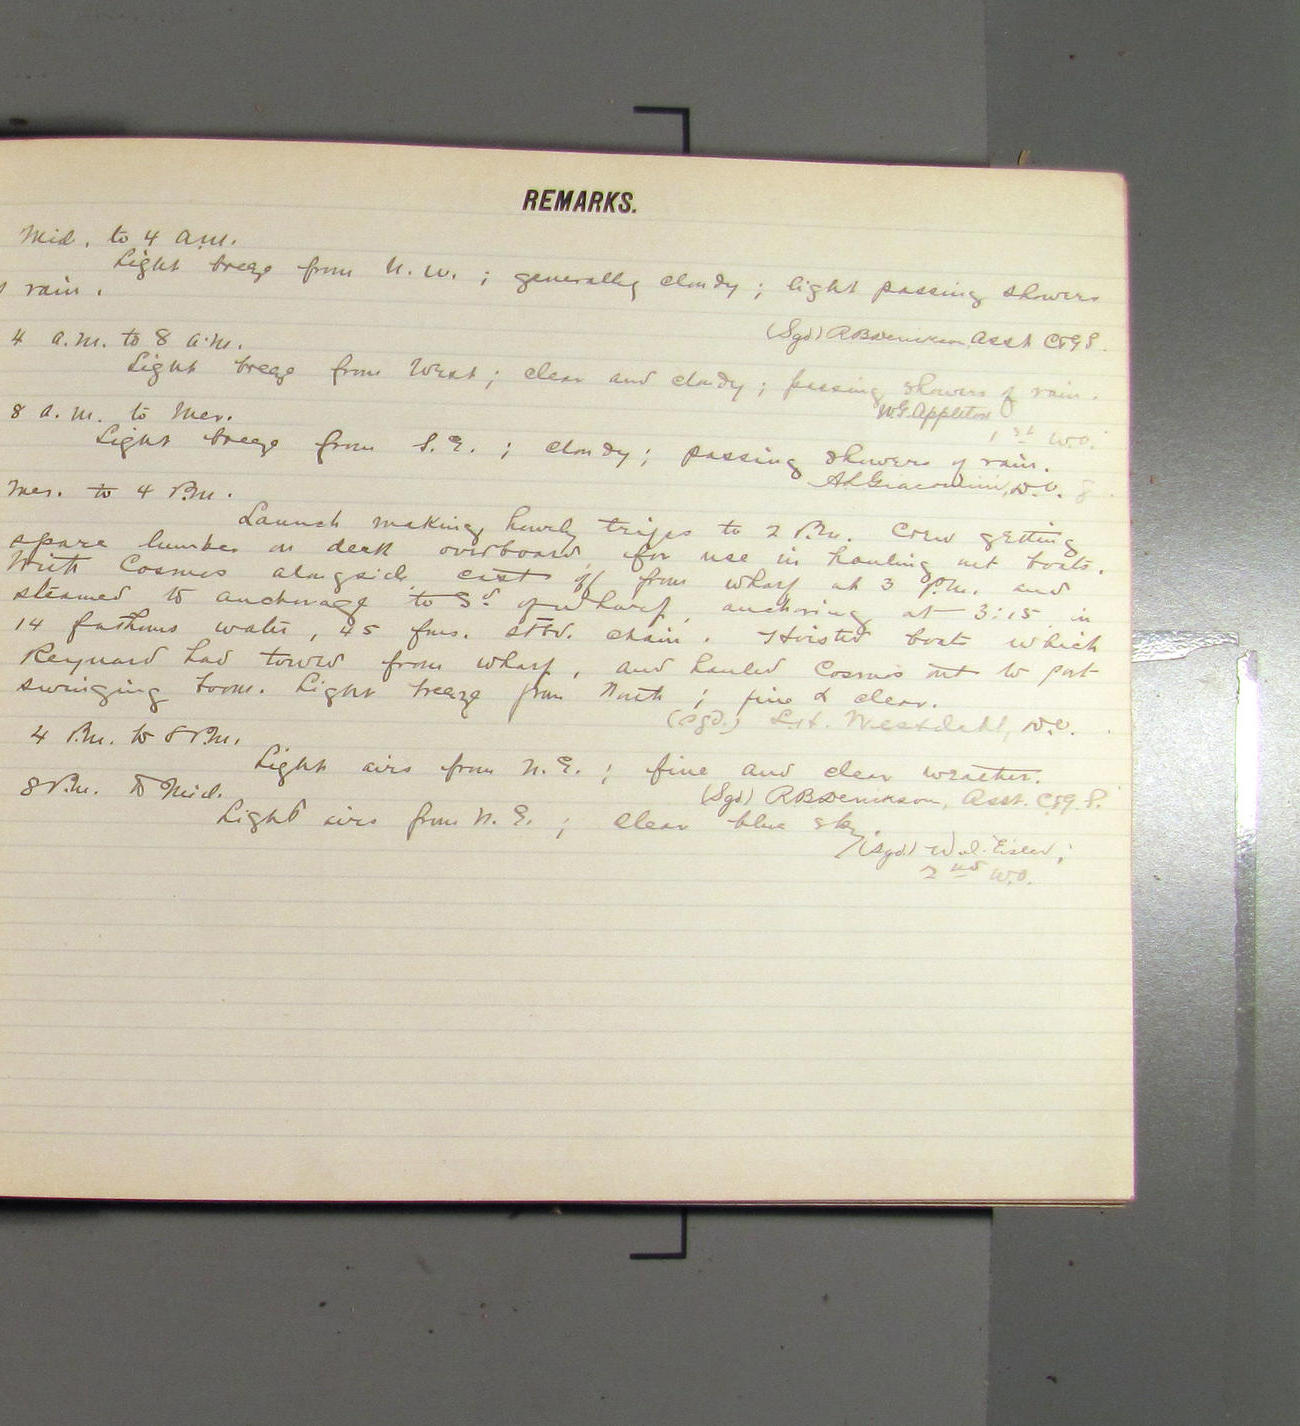 REMARKS.
Mid. to 4 a.m.
Light breeze from N. W. ; generally cloudy ; light passing showers
rain.
(Sgd) R B Derickson, Asst. C&G S.
4 a.m. to 8 a.m.
Light breeze from West ; clear and cloudy ; passing showers of rain.
W G. Appleton
1st W.O.
8 a.m. to Mer.
Light breeze from S. E. ; cloudy ; passing showers of rain.
A L Giacomini, D.O.
Mer. to 4 P.m.
Launch making hourly trips to 2 P.m. Crew getting
spare lumber on deck overboard, for use in hauling out boats.
With Cosmos alongside, cast off from wharf at 3 P.m. and
steamed to anchorage to Sd of wharf, anchoring at 3:15 in
14 fathoms water, 45 fms. stbd. chain. Hoisted boats which
Reynard had towed from wharf, and hauled Cosmos out to port
swinging boom. Light breeze from North ; fine & clear.
(Sgd.) Westdahl, D.O.
4 P.m. to 8 P.m.
Light airs from N. E. ; fine and clear weather.
(Sgd) R B Derickson, Asst. C&G. S.
8 P.m. to Mid.
Light airs from N. E. ; clear blue sky.
(Sgd.)
2nd W.O.